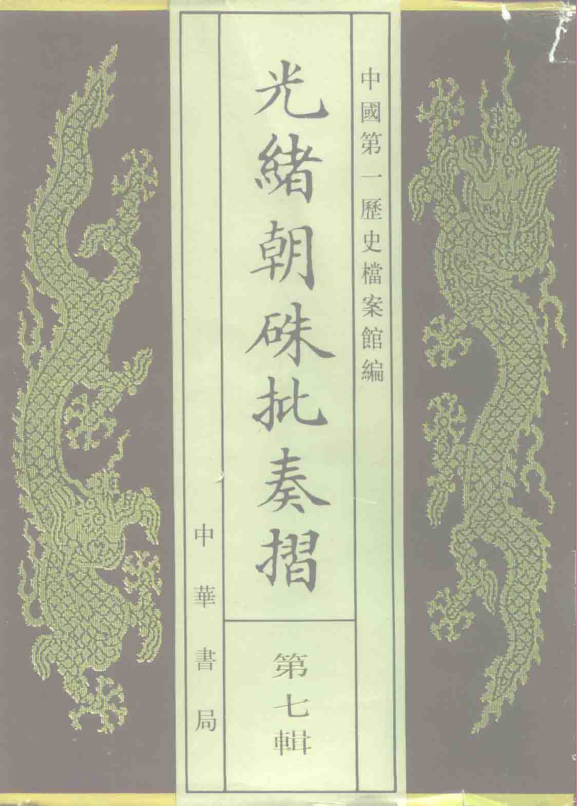 中國第一歷史檔案館編
光緒朝硃批奏摺
第七輯
中華書局